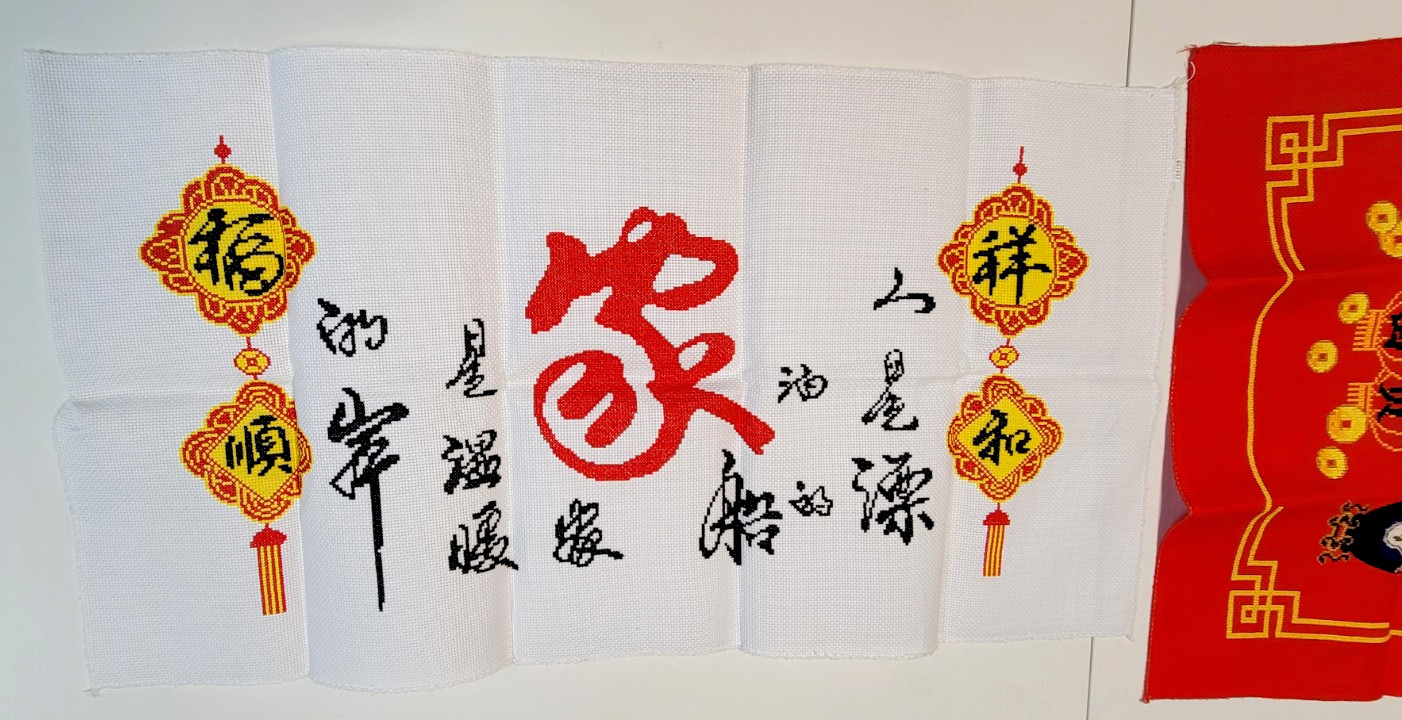 祥和
人是漂
泊的
船
家
家
是温暖
的岸
福順